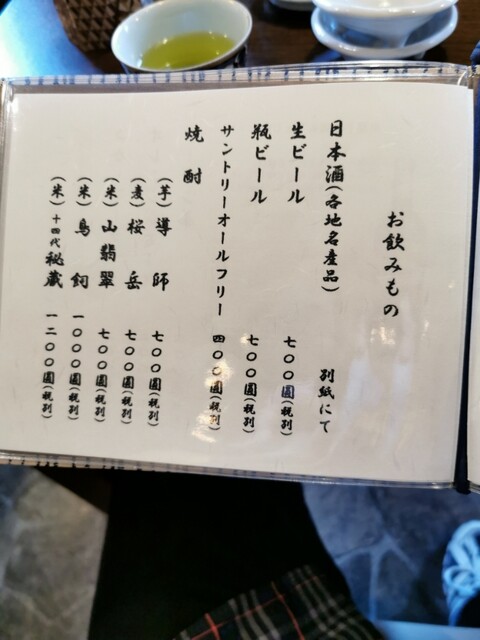 お飲みもの
日本酒(各地名産品) 別紙にて
生ビール 七〇〇圓(税別)
瓶ビール 七〇〇圓(税別)
サントリーオールフリー 四〇〇圓(税別)
焼酎
(芋)導師 七〇〇圓(税別)
(麦)桜岳 七〇〇圓(税別)
(米)山翡翠 七〇〇圓(税別)
(米)鳥飼 一〇〇〇圓(税別)
(米)十四代秘蔵 一二〇〇圓(税別)